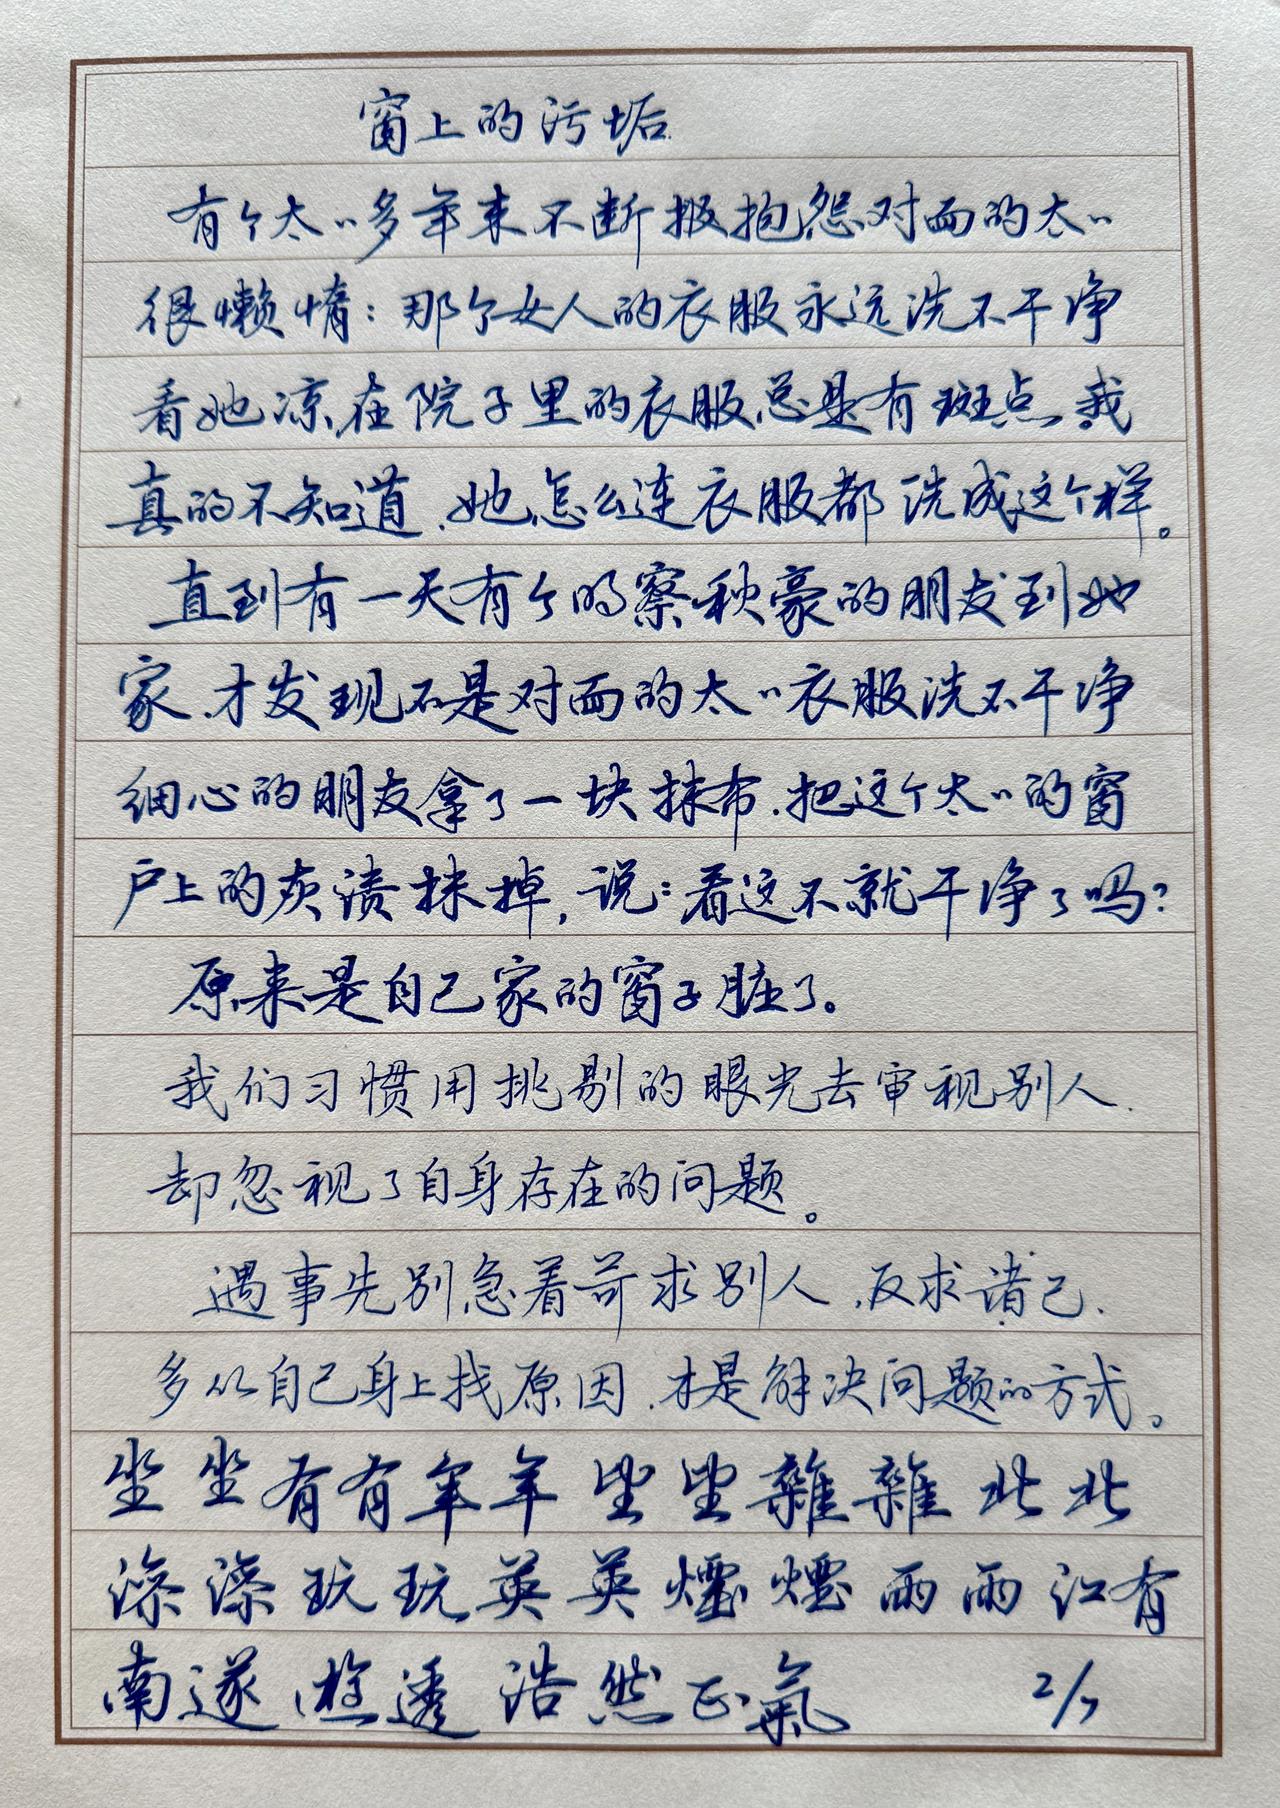 窗上的污垢
有个太〃多年来不断报抱怨对面的太〃
很懒惰：那个女人的衣服永远洗不干净
看她凉在院子里的衣服总是有斑点,我
真的不知道,她怎么连衣服都洗成这个样。
直到有一天有个明察秋豪的朋友到她
家,才发现不是对面的太〃衣服洗不干净
细心的朋友拿了一块抹布,把这个太〃的窗
户上的灰渍抹掉,说：看这不就干净了吗?
原来是自己家的窗子脏了。
我们习惯用挑剔的眼光去审视别人,
却忽视了自身存在的问题。
遇事先别急着苛求别人,反求诸己,
多从自己身上找原因,才是解决问题的方式。
坐坐有有年年坐坐雜雜北北
深深玩玩英英煙煙雨雨江有
南遂遊透浩然正氣 2/7